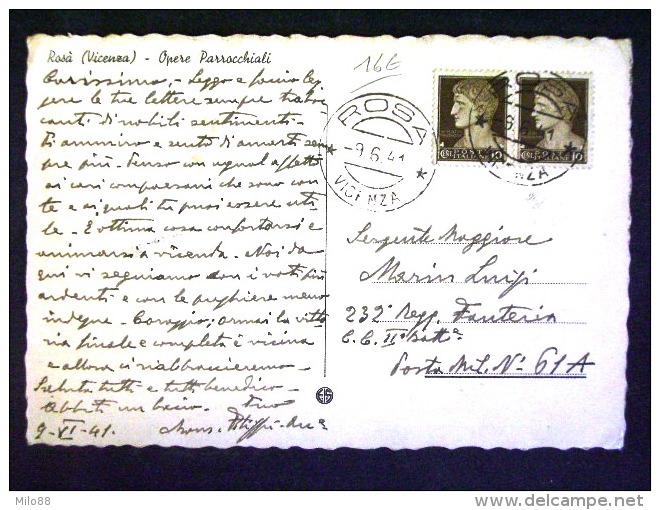 Rosà (Vicenza) - Opere Parrocchiali
16€
Carissimo, - Leggo e faccio leg
gere le tue lettere sempre traboc
canti di nobili sentimenti -
Ti ammiro e sento di amarti sem
pre più - Penso con ugual affetto
ai cari compaesani che sono con
te e ai quali tu puoi essere uti
le - È ottima cosa confortarsi e
animarsi a vicenda - Noi da
qui vi seguiamo con i voti più
ardenti e con le preghiere meno
indegne - Coraggio; ormai la vitto
ria finale e completa è vicina
e allora ci riabbracceremo -
Saluta tutti e tutti benedico -
Abbiti un bacio. Tuo
9-VI-41. Mons. Filippi
ROSA
-9.6.41
VICENZA
ROSA
VICENZA
POSTE ITALIANE
10
POSTE ITALIANE
10
Sergente Maggiore
Marin Luigi
232° Regg. Fanteria
C. C. II° Batt.
Posta Mil. N° 61 A
Milo88
www.delcampe.net